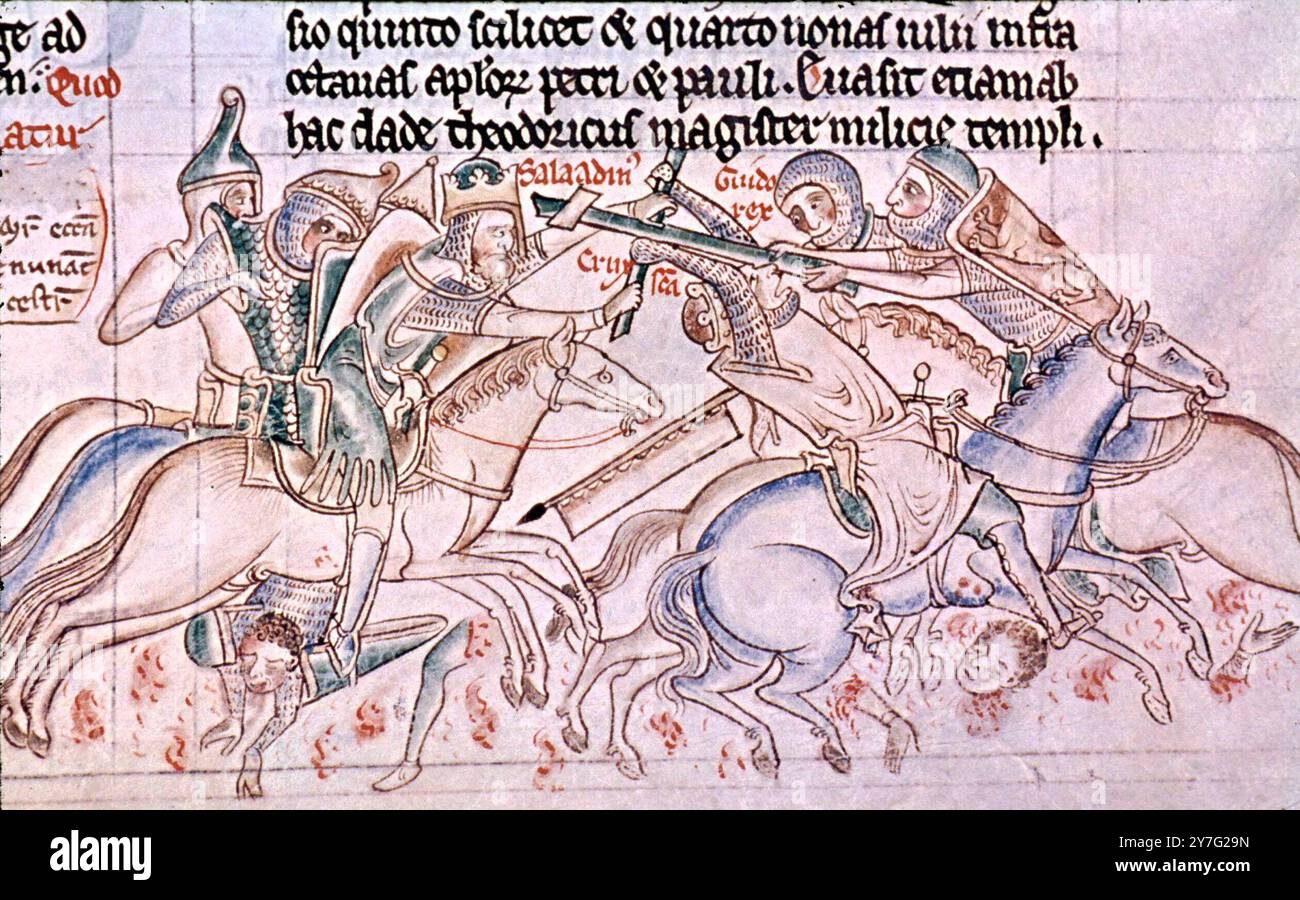 ge ad
en. Quod
atur
sio quinto scilicet & quarto nonas iulii infra
octauas aploꝝ petri & pauli. Euasit etiam ab
hac clade theodoricus magister milicie templi.
Saladin9
Guido
rex
Crux sc̄a
nunāc
alamy
Image ID: 2Y7G29N
www.alamy.com